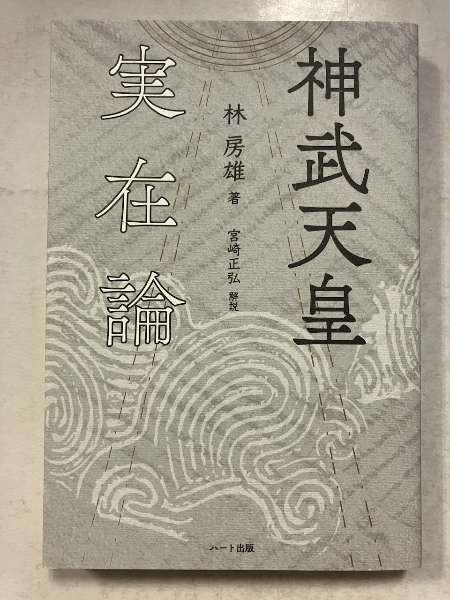 神武天皇
実在論
林房雄 著
宮崎正弘 解説
ハート出版